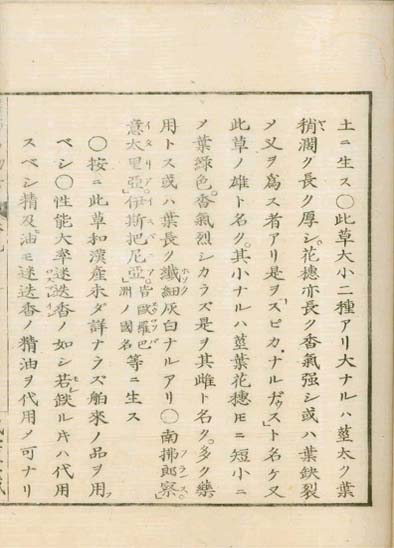 土ニ生ス〇此草大小二種アリ大ナルハ莖太ク葉
稍濶ク長ク厚シ花穗亦長ク香氣强シ或ハ葉鈌裂
メ叉ヲ爲ス者アリ是ヲ「スピカ、ナルヂゥス」ト名ケ又
此草ノ雄ト名ク其小ナルハ莖葉花穗𪜈ニ短小ニ
メ葉綠色香氣烈シカラズ是ヲ其雌ト名ク多ク藥
用トス或ハ葉長ク纖細灰白ナルアリ〇南拂郎察
意太里亞伊斯把尼亞皆歐羅巴洲ノ國名等ニ生ス
〇按ニ此草和漢産未ダ詳ナラズ舶來ノ品ヲ用フ
ベシ〇性能大率迷迭香ノ如シ若鈌ルキハ代用
スベシ精及油モ迷迭香ノ精油ヲ代用メ可ナリ